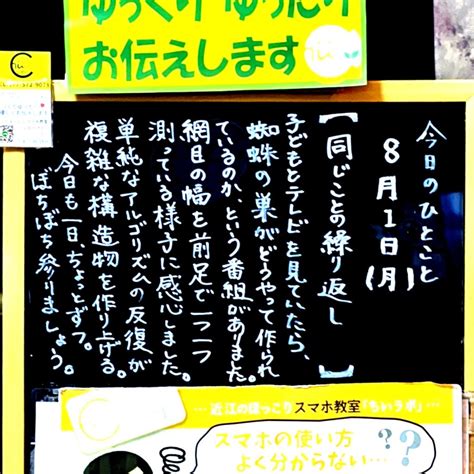 ゆっくり ゆったり
お伝えします
今日のひとこと
8月1日(月)
【同じことの繰り返し】
子どもとテレビを見ていたら、
蜘蛛の巣がどうやって作られ
ているのか、という番組がありました。
網目の幅を前足で一つ一つ
測っている様子に感心しました。
単純なアルゴリズムの反復が
複雑な構造物を作り上げる。
今日も一日、ちょっとずつ。
ぼちぼち参りましょう。
… 近江のほっこりスマホ教室「ちいラボ」 …
スマホの使い方
よく分からない…
???